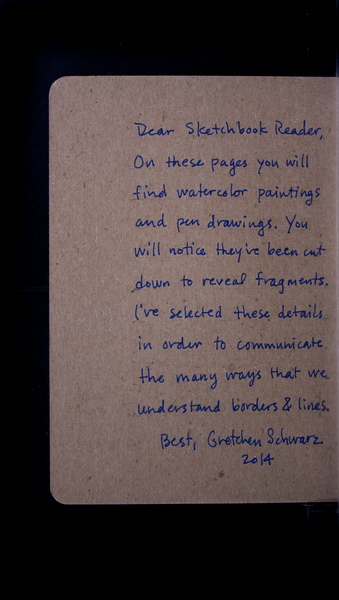 Dear Sketchbook Reader,
On these pages you will
find watercolor paintings
and pen drawings. You
will notice they've been cut
down to reveal fragments.
I've selected these details
in order to communicate
the many ways that we
understand borders & lines.
Best, Gretchen Schwarz
2014